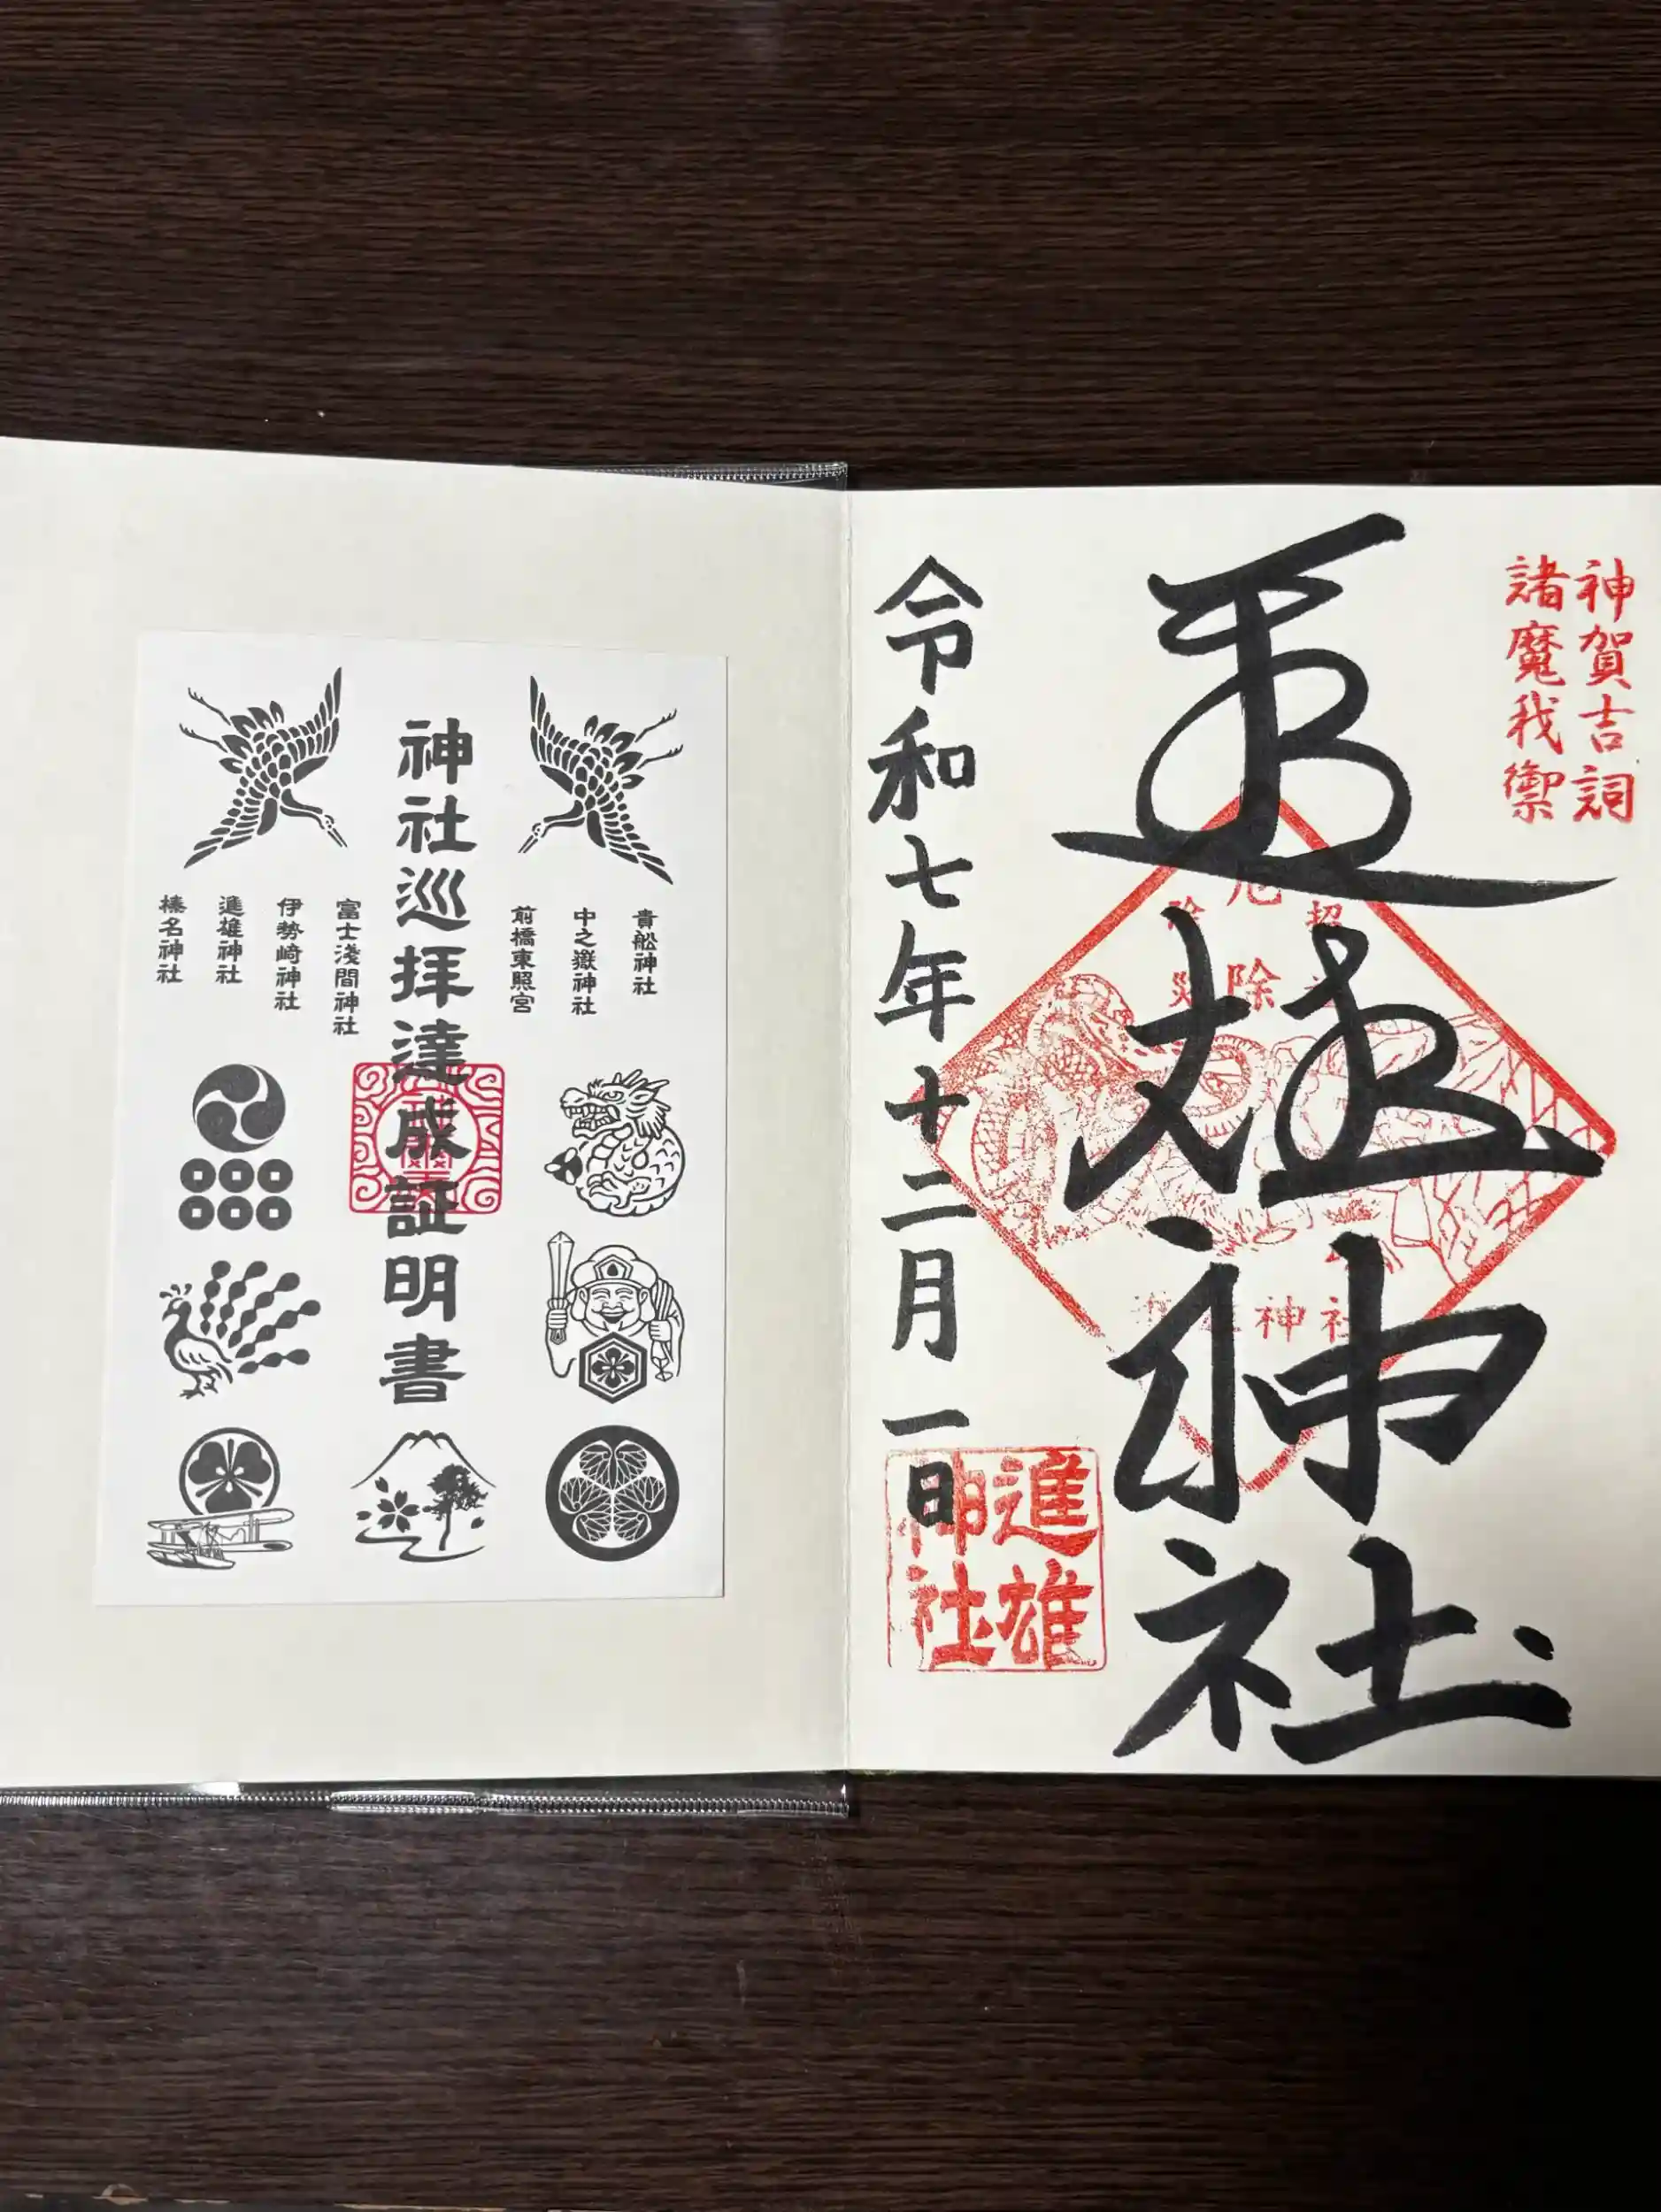 神賀吉詞
諸魔我禦
進雄神社
令和七年十二月一日
除
神社
進雄
神社
神社巡拝達成証明書
貴船神社
中之嶽神社
前橋東照宮
富士浅間神社
伊勢崎神社
進雄神社
榛名神社